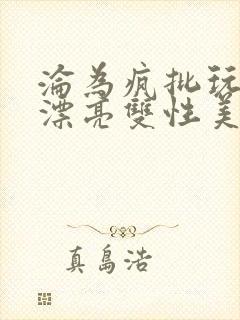 淪為瘋批玩
漂亮雙性美
真島浩